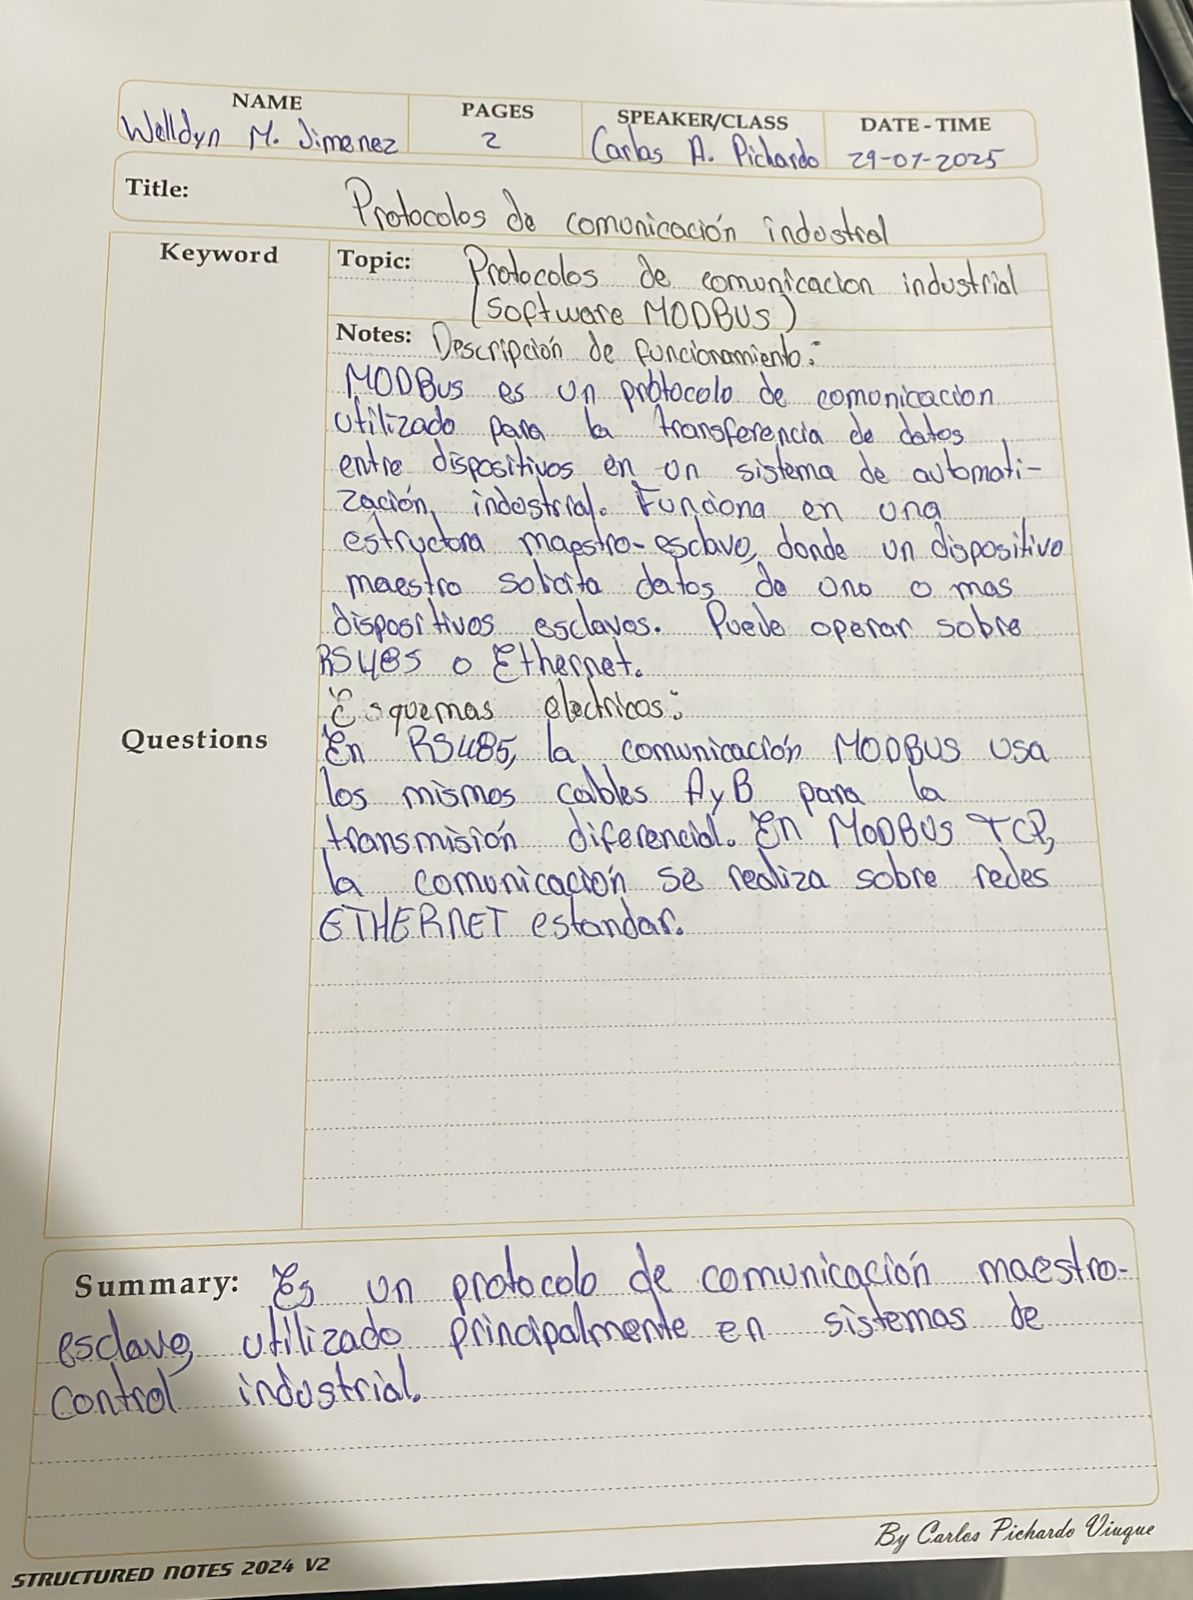 NAME
PAGES
SPEAKER/CLASS
DATE - TIME
Welldyn M. Jimenez
2
Carlos A. Pichardo
29-01-2025
Title:
Protocolos de comunicación industrial
Keyword
Topic:
Protocolos de comunicacion industrial
(Software MODBUS)
Notes: Descripción de funcionamiento:
MODBus es un protocolo de comunicacion
utilizado para la transferencia de datos
entre dispositivos en un sistema de automati-
zación, industrial. Funciona en una
estructura maestro-esclavo, donde un dispositivo
maestro solicita datos de uno o mas
dispositivos esclavos. Puede operar sobre
RS485 o Ethernet.
Esquemas electricos:
Questions
En RS485, la comunicación MODBUS usa
los mismos cables A y B para la
transmisión diferencial. En MODBUS TCP,
la comunicación se realiza sobre redes
ETHERNET estandar.
Summary: Es un protocolo de comunicación maestro-
esclavo, utilizado principalmente en sistemas de
control industrial.
By Carlos Pichardo Viuque
STRUCTURED NOTES 2024 V2